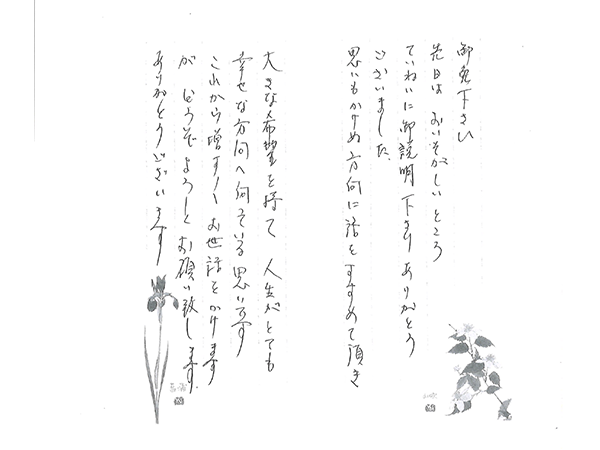 御免下さい
先日は おいそがしい ところ
ていねいに御説明 下さり ありがとう
ございました。
思いもかけぬ方向に話を すすめて頂き
大きな希望を持て 人生がとても
幸せな方向へ向っている思いです
これから増す〱 お世話をかけます
が どうぞ よろしく お願い致します。
ありがとうございます